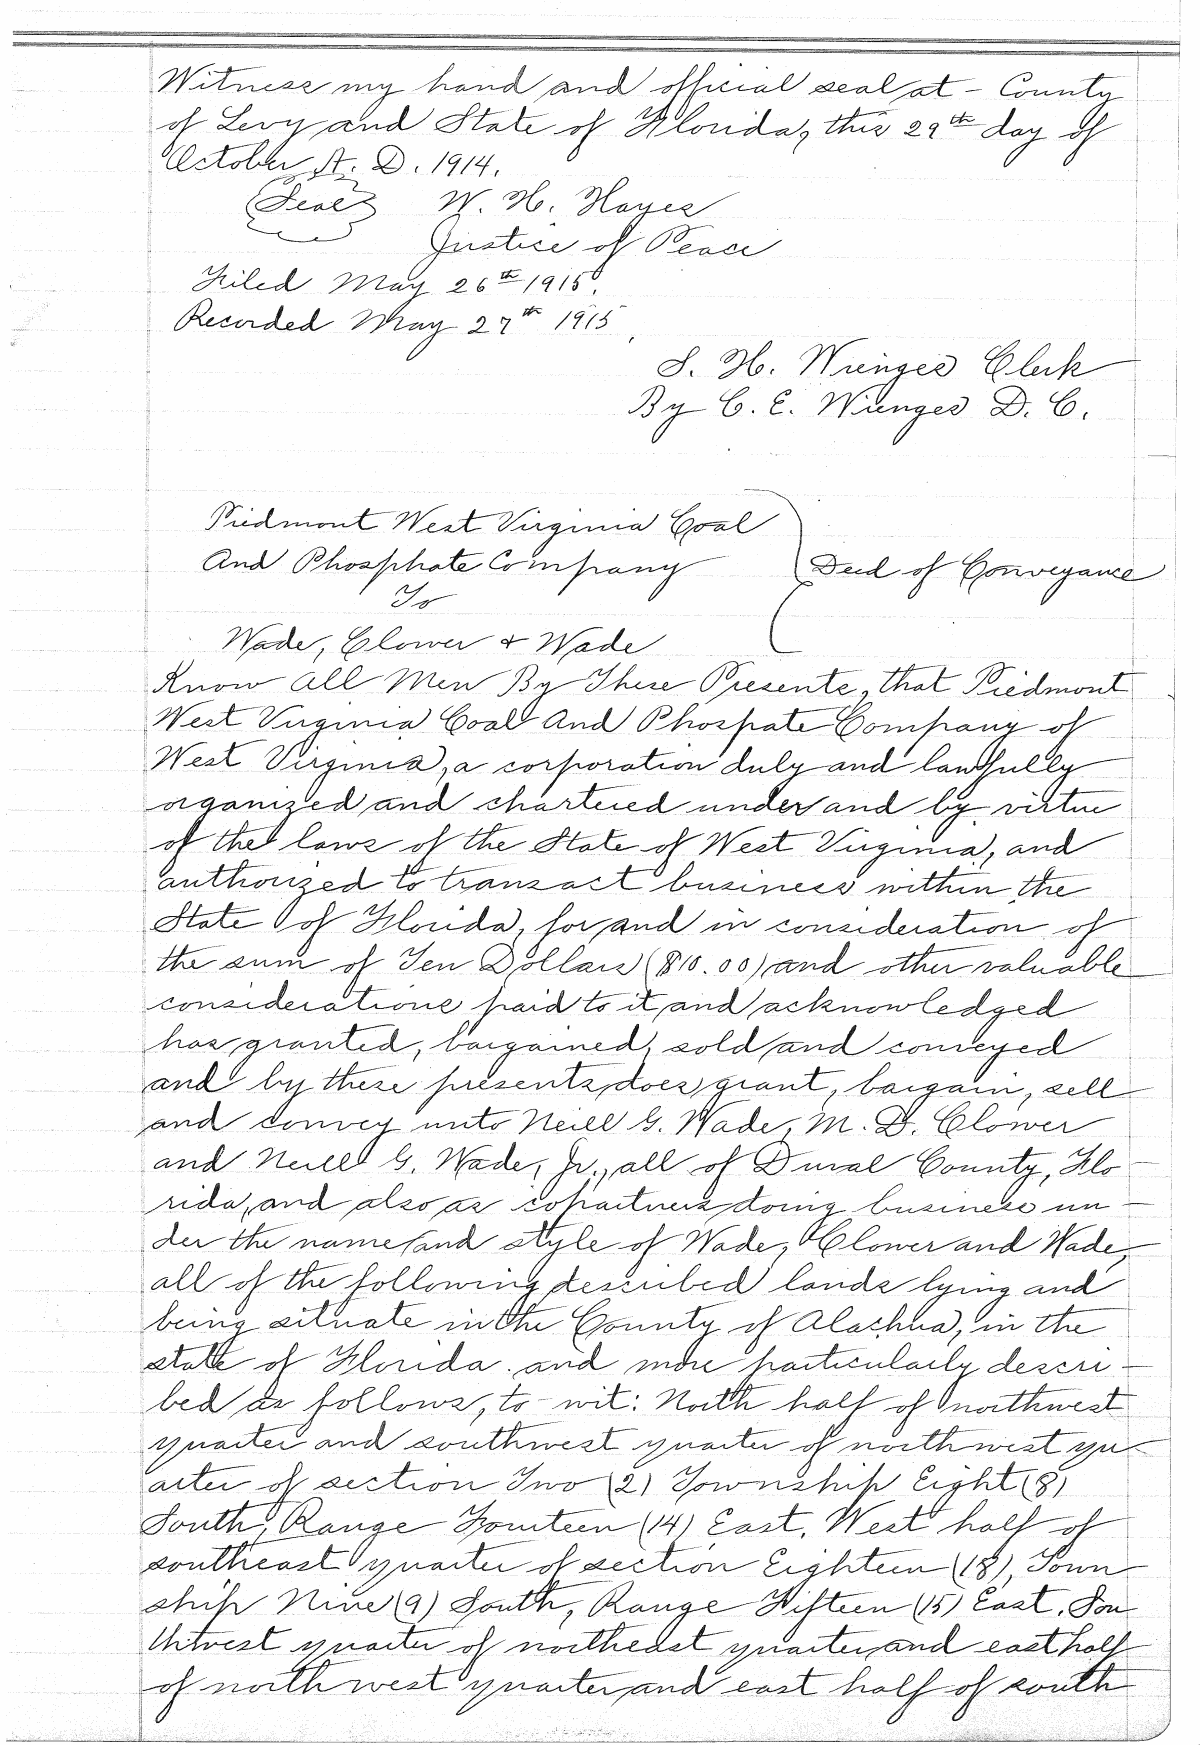 Witness my hand and official seal at - County
of Levy and State of Florida, this 29th day of
October A. D. 1914.
(Seal) W. H. Hayes
Justice of Peace
Filed May 26th 1915.
Recorded May 27th 1915
S. H. Wienges Clerk
By C. E. Wienges D. C.
Piedmont West Virginia Coal
And Phosphate Company
To
Wade, Clower & Wade
Deed of Conveyance
Know All Men By These Presents, that Piedmont
West Virginia Coal And Phospate Company of
West Virginia, a corporation duly and lawfully
organized and chartered under and by virtue
of the laws of the State of West Virginia, and
authorized to transact business within the
State of Florida, for and in consideration of
the sum of Ten Dollars ($10.00) and other valuable
considerations paid to it and acknowledged
has granted, bargained, sold and conveyed
and by these presents does grant, bargain, sell
and convey unto Neill G. Wade, M. D. Clower
and Neill G. Wade, Jr., all of Duval County, Flo-
rida, and also as copartners doing business un-
der the name and style of Wade, Clower and Wade,
all of the following described lands lying and
being situate in the County of Alachua, in the
state of Florida. and more particularly descri-
bed as follows, to-wit: North half of northwest
quarter and southwest quarter of northwest qu-
arter of section Two (2) Township Eight (8)
South, Range Fourteen (14) East. West half of
southeast quarter of section Eighteen (18), Town
ship Nine (9) South, Range Fifteen (15) East. Sou
thwest quarter of northeast quarter and east half
of northwest quarter and east half of south